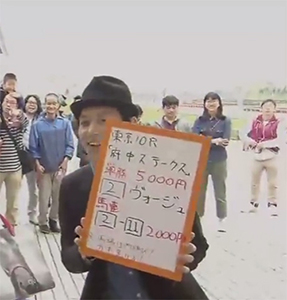 東京10R
「府中ステークス」
単勝 5000円
2 ヴォージュ
馬連
2-11 2000円